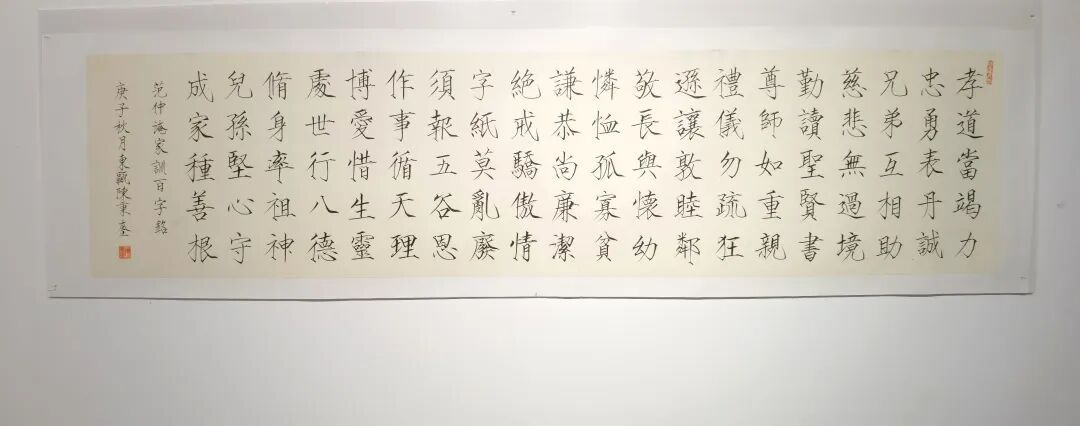 孝道當竭力
忠勇表丹誠
兄弟互相助
慈悲無過境
勤讀聖賢書
尊師如重親
禮儀勿疏狂
遜讓敦睦鄰
敬長與懷幼
憐恤孤寡貧
謙恭尚廉潔
絕戒驕傲情
字紙莫亂廢
須報五谷恩
作事循天理
博愛惜生靈
處世行八德
脩身率祖神
兒孫堅心守
成家種善根
范仲淹家訓百字銘
庚子秋月東甌陳秉